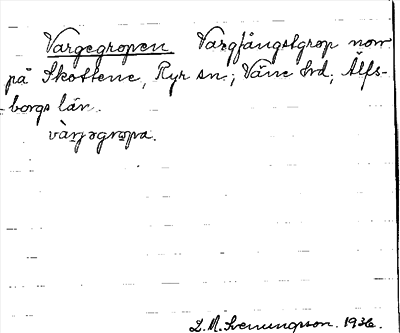 Vargegropen Vargfångstgrop norr
på Skottene, Ryr sn.; Väne hd; Älfs-
borgs län.
vàrjəgropa.
L. M. Svenungsson. 1936.